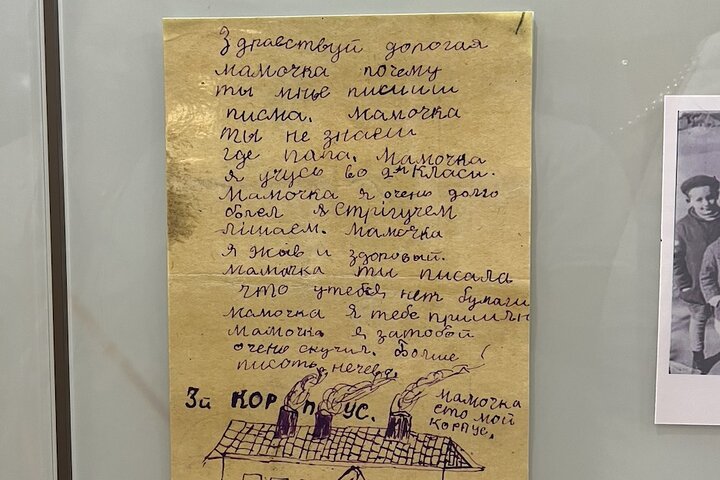 Здравствуй дорогая
мамочка почему
ты мнье пиешиш
писма. мамочка
ты не знаеш
где папа. мамочка
я учусь во 2м класи.
мамочка я очень долго
облел я стрігучем
лішаем. мамочка
я жыв и здоровый.
мамочка ти писала
что утебя нет бумаги
мамочка я тебе пришлю
мамочка я затобой
очень скучил. болше
писоть нечево.
3й корпус.
мамочка
ето мой
корпус.